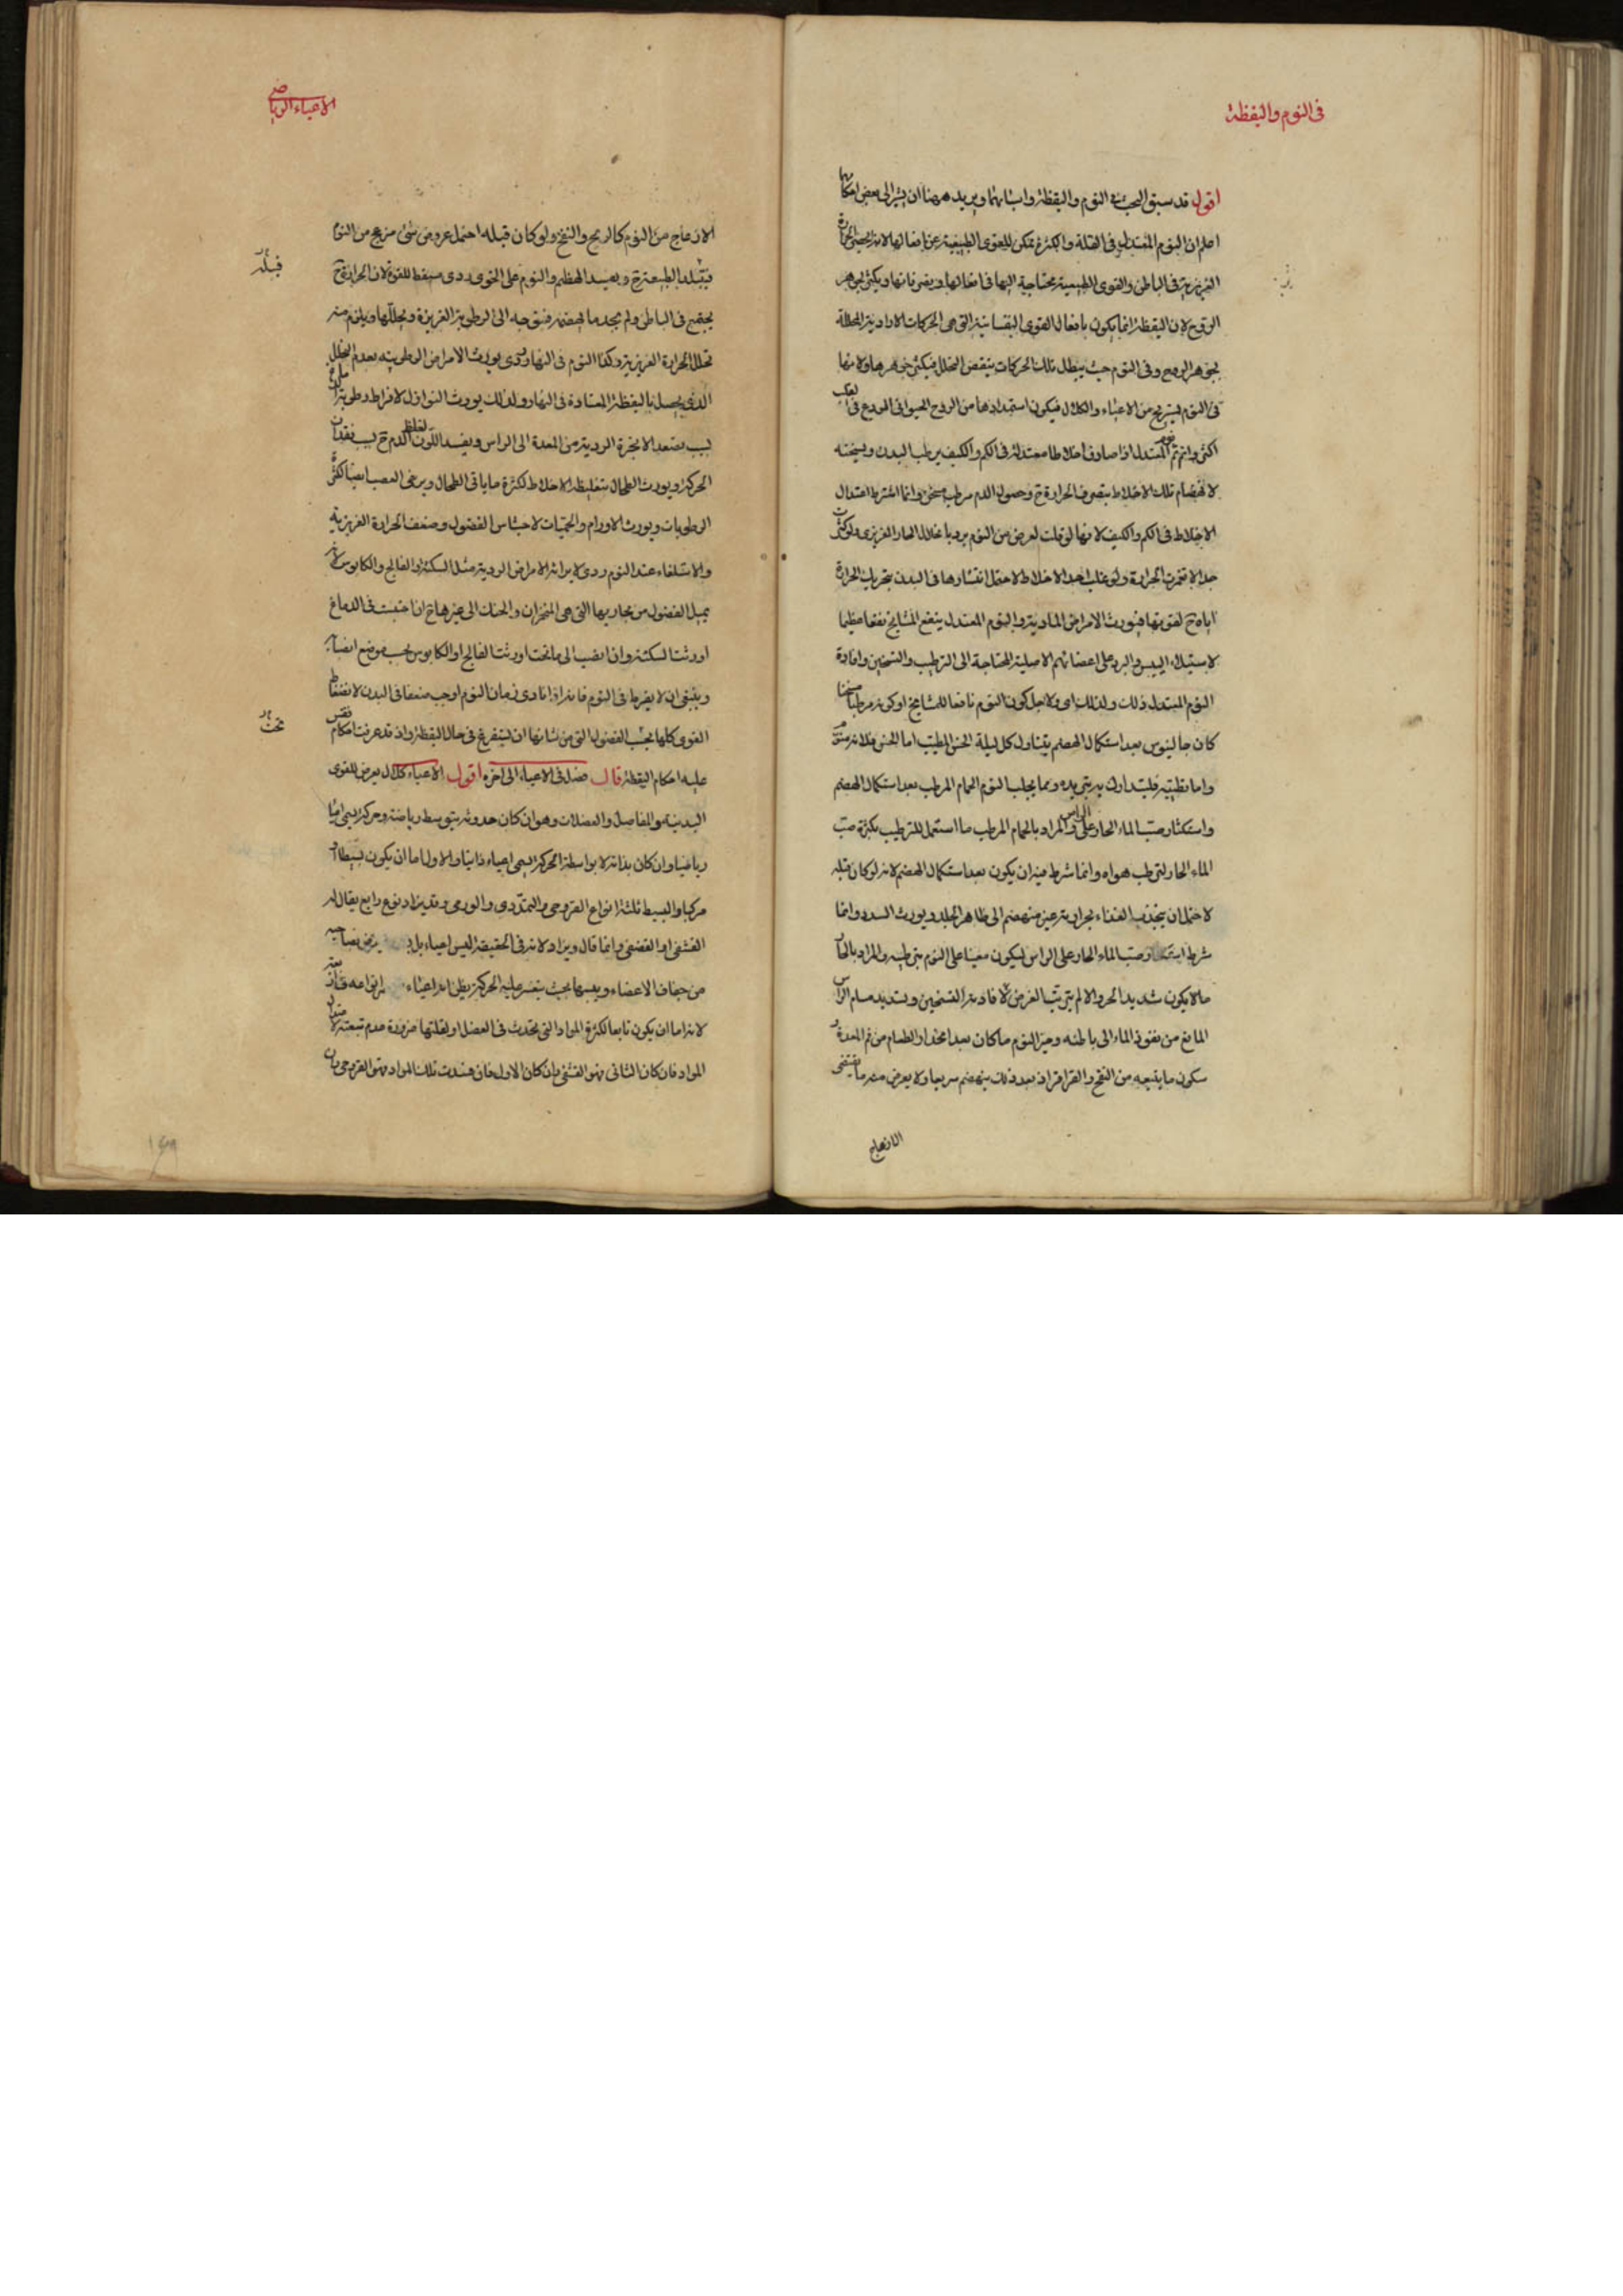 فى النوم واليقظة
اقول قد سبق البحث فى النوم واليقظة واسبابهما ويريد ههنا ان يشير الى بعض احكامها
اعلم ان النوم المعتدل فى القلة والكثرة يمكن للقوى الطبيعية عن افعالها لانه يحبس الحرارة
الغريزية فى الباطن والقوى الطبيعية محتاجة اليها فى افعالها وتصرفاتها ويكثر جوهر
الروح لان اليقظة انما يكون بافعال القوى النفسانية التى هى الحركات الارادية المحللة
لجوهر الروح وفى النوم حيث يبطل تلك الحركات ينقص التحلل فيكثر جوهرها ولانها
فى النوم يستريح من الاعياء والكلال فيكون استمدادها من الروح الحيوانى المودع فى القلب
اكثر واتم ثم النوم المعتدل اذا صادف اخلاطا معتدلة فى الكم والكيف يرطب البدن ويسخنه
لانهضام تلك الاخلاط بتصرف الحرارة ح وحصول الدم مرطب مسخن وانما اشترط اعتدال
الاخلاط فى الكم والكيف لانها لو قلت لعرض من النوم برد بانحلال الحار الغريزى ولو كثرت
جدا لانغمرت الحرارة ولو غلب احد الاخلاط لاحتمل انتشارها فى البدن بتحريك الحرارة
اياه ح لقوتها فيورث الامراض المادية والنوم المعتدل ينفع المشايخ نفعا عظيما
لاستيلاء اليبس والبرد على اعضائهم الاصلية المحتاجة الى الترطيب والتسخين وافادة
النوم المعتدل ذلك ولذلك اى ولاجل كون النوم نافعا للمشايخ او كونه مرطبا مسخنا
كان جالينوس بعد استكمال الهضم يتناول كل ليلة الخس المطيب اما الخس فلانه منوم
واما تطييبه فليتدارك به تبريده ومما يجلب النوم الحمام المرطب بعد استكمال الهضم
واستكثار صب الماء الحار على الراس والمراد بالحمام المرطب ما استعمل للترطيب بكثرة صب
الماء الحار لترطب هواه وانما شرط فيه ان يكون بعد استكمال الهضم لانه لو كان قبله
لاحتمل ان يجذب الغذاء بحرارته غير منهضم الى ظاهر الجلد ويورث السدد وانما
شرط صب الماء الحار على الراس ليكون معينا على النوم بترطيبه والمراد بالحار
ما لا يكون شديد الحر والا لم يترتب الغرض لافادته التسخين وتسديد مسام الراس
المانع من نفوذ الماء الى باطنه وخير النوم ما كان بعد انحدار الطعام من فم المعدة و
سكون ما يتبعه من النفخ والقراقر اذ بعد ذلك ينهضم سريعا ولا يعرض منه ما يقتضى
الانزعاج
الاعياء الرياضى
الانزعاج من النوم كالريح والنفخ ولو كان قبله احتمل عروض شئ مزعج من النوم
فيتبلد الطبيعة ح ويفسد الهضم والنوم على الخوى ردى مسقط للقوة لان الحرارة ح
يجتمع فى الباطن ولم يجد ما يهضمه فتتوجه الى الرطوبة الغريزية وتحللها ويلزم منه
تحلل الحرارة الغريزية وكذا النوم فى النهار ردى يورث الامراض الرطوبية بعدم التحلل
الذى يحصل باليقظة المعتادة فى النهار ولذلك يورث النوازل لافراط رطوبة الدماغ
بسبب تصعد الابخرة الردية من المعدة الى الراس ويفسد اللون لغلظ الدم ح بسبب فقدان
الحركة ويورث الطحال بتغليظه الاخلاط لكثرة ما ياتى الطحال ويرخى العصب ايضا لكثرة
الرطوبات ويورث الاورام والحميات لاحتباس الفضول وضعف الحرارة الغريزية
والاستلقاء عند النوم ردى لايراثه الامراض الردية مثل السكتة والفالج والكابوس لانه
يميل الفضول من مجاريها التى هى المنخران والحنك الى غيرها ح ان احتبست فى الدماغ
اورثت السكتة وان انصب الى ما تحت اورثت الفالج او الكابوس بحسب موضع انصبابه
وينبغى ان لا يفرط فى النوم فانه اذا تمادى زمان النوم اوجب ضعفا فى البدن لانضغاط
القوى كلها تحت الفضول التى من شانها ان يستفرغ فى حال اليقظة واذ قد عرفت احكام النوم فقس
عليه احكام اليقظة قال فصل فى الاعياء الى اخره اقول الاعياء كلال يعرض للقوى
البدنية والمفاصل والعضلات وهو ان كان حدوثه بتوسط رياضة وحركة يسمى اعياء
رياضيا وان كان بذاته لا بواسطة الحركة يسمى اعياء ذاتيا والاول اما ان يكون بسيطا او
مركبا والبسيط ثلثة انواع القروحى والتمددى والورمى وقد يزاد نوع رابع يقال له
القشفى او القضفى وانما قال ويزاد لانه فى الحقيقة ليس اعياء بل يعرض لصاحبه
من جفاف الاعضاء ويبسها بحيث يتعسر عليه الحركة يظن انه اعياء
لانه اما ان يكون تابعا لكثرة المواد التى تحدث فى العضل او لقلتها ضرورة عدم تبعيته لاعتدال
المواد فان كان الثانى فهو القشفى وان كان الاول فان فسدت تلك المواد فهو القروحى وان